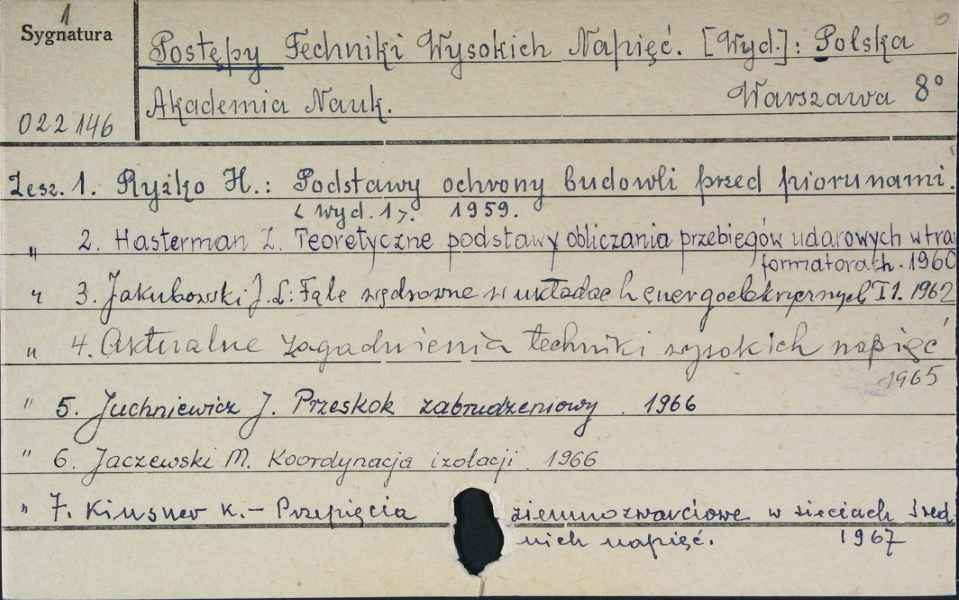 1
Sygnatura
Postępy Techniki Wysokich Napięć. [Wyd.]: Polska
Akademia Nauk. Warszawa 8°
022146
Zesz. 1. Ryżko H.: Podstawy ochrony budowli przed piorunami.
< wyd. 1 >. 1959.
" 2. Hasterman Z. Teoretyczne podstawy obliczania przebiegów udarowych w tra
formatorach. 1960
" 3. Jakubowski J.L: Fale wędrowne w układach energoelektrycznych T1. 1962
" 4. Aktualne zagadnienia techniki wysokich napięć
1965
" 5. Juchniewicz J. Przeskok zabrudzeniowy. 1966
" 6. Jaczewski M. Koordynacja izolacji. 1966
" 7. Kinsner K. – Przepięcia ziemnozwarciowe w sieciach śred
nich napięć. 1967